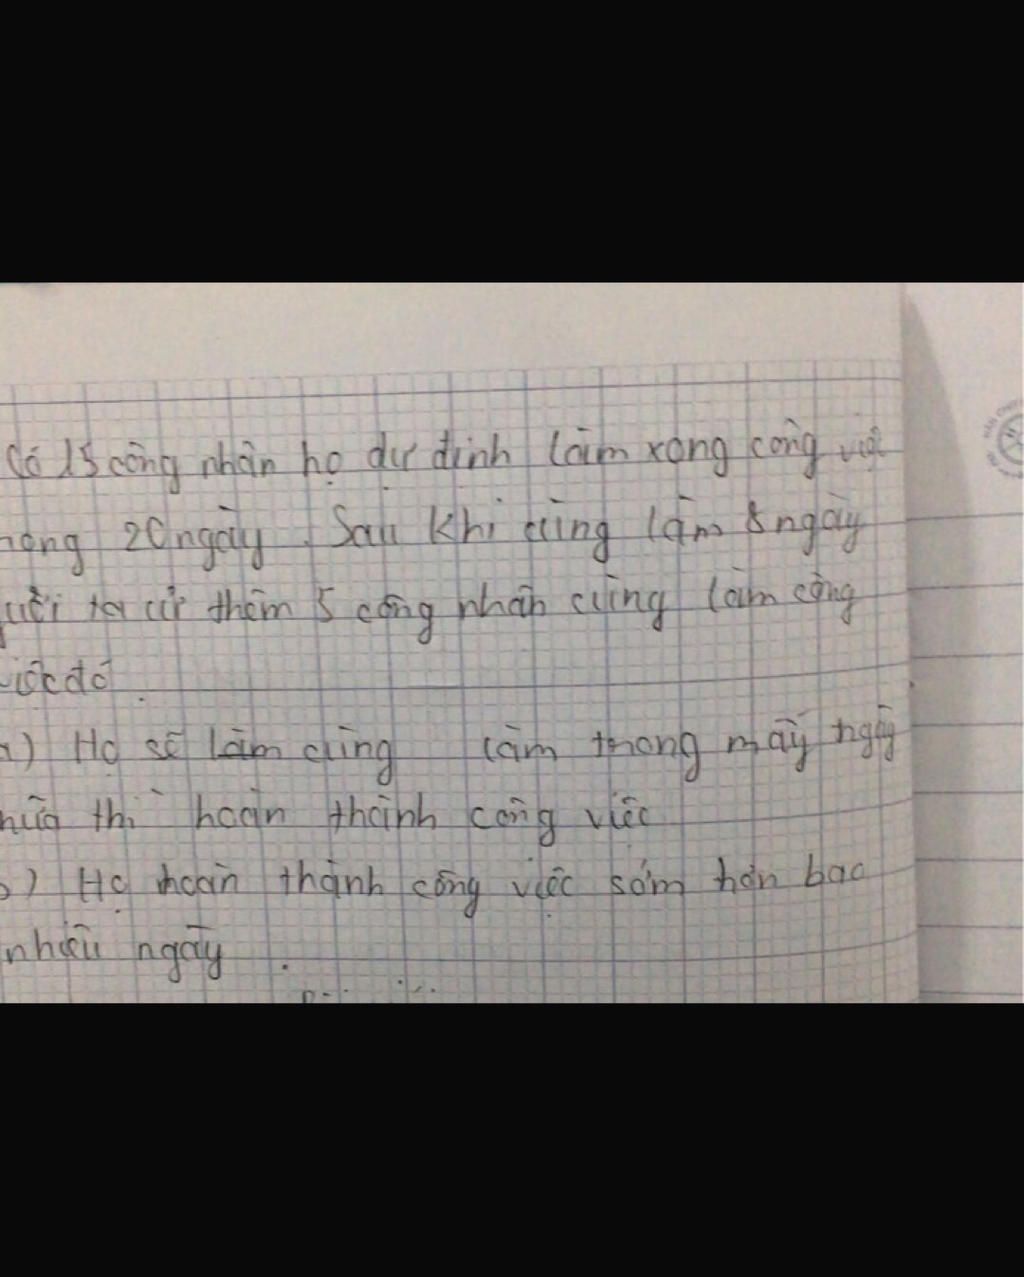 Có 15 công nhân họ dự định làm xong công việc
20 ngày. Sau khi cùng làm 8 ngày
ta cử thêm 5 công nhân cùng làm công
đó.
) Họ sẽ làm cùng làm trong mấy ngày
thì hoàn thành công việc
) Họ hoàn thành công việc sớm hơn bao
nhiêu ngày.